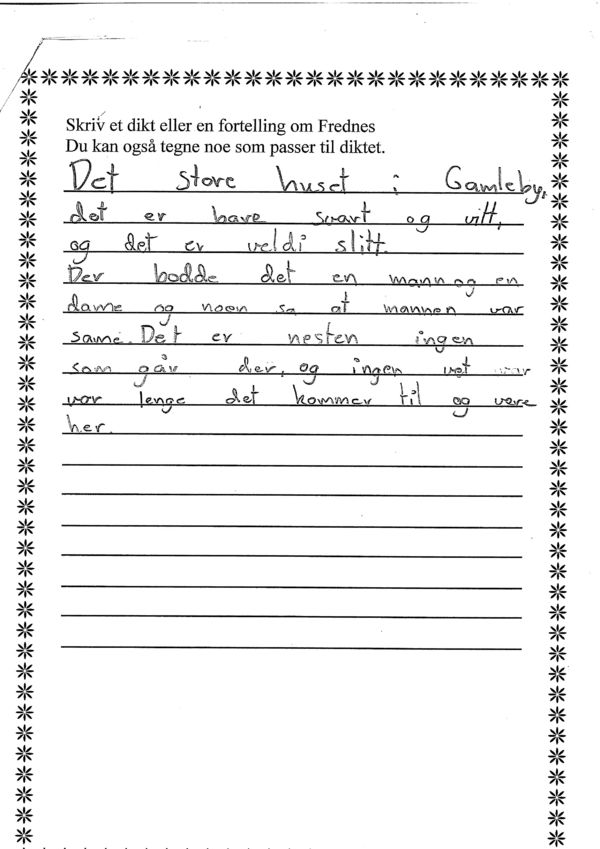 Skriv et dikt eller en fortelling om Frednes
Du kan også tegne noe som passer til diktet.
Det store huset i Gamleby,
det er bare svart og vitt,
og det er veldi slitt.
Der bodde det en mann og en
dame og noen sa at mannen var
same. Det er nesten ingen
som går der, og ingen vet
vor lenge det kommer til og være
her.